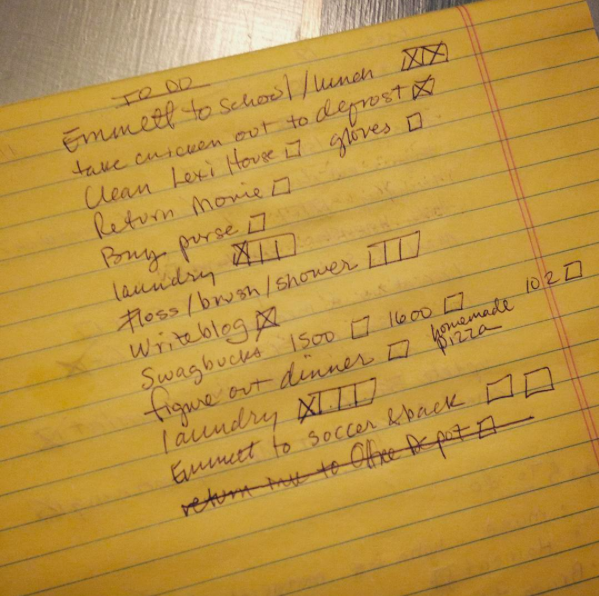 TO DO
Emmett to school/lunch
take chicken out to defrost
Clean Lexi House gloves
Return Movie
Buy purse
laundry
floss/brush/shower
Write blog
Swagbucks 1500 1600 102
figure out dinner homemade pizza
laundry
Emmett to soccer & back
return ink to Office Depot